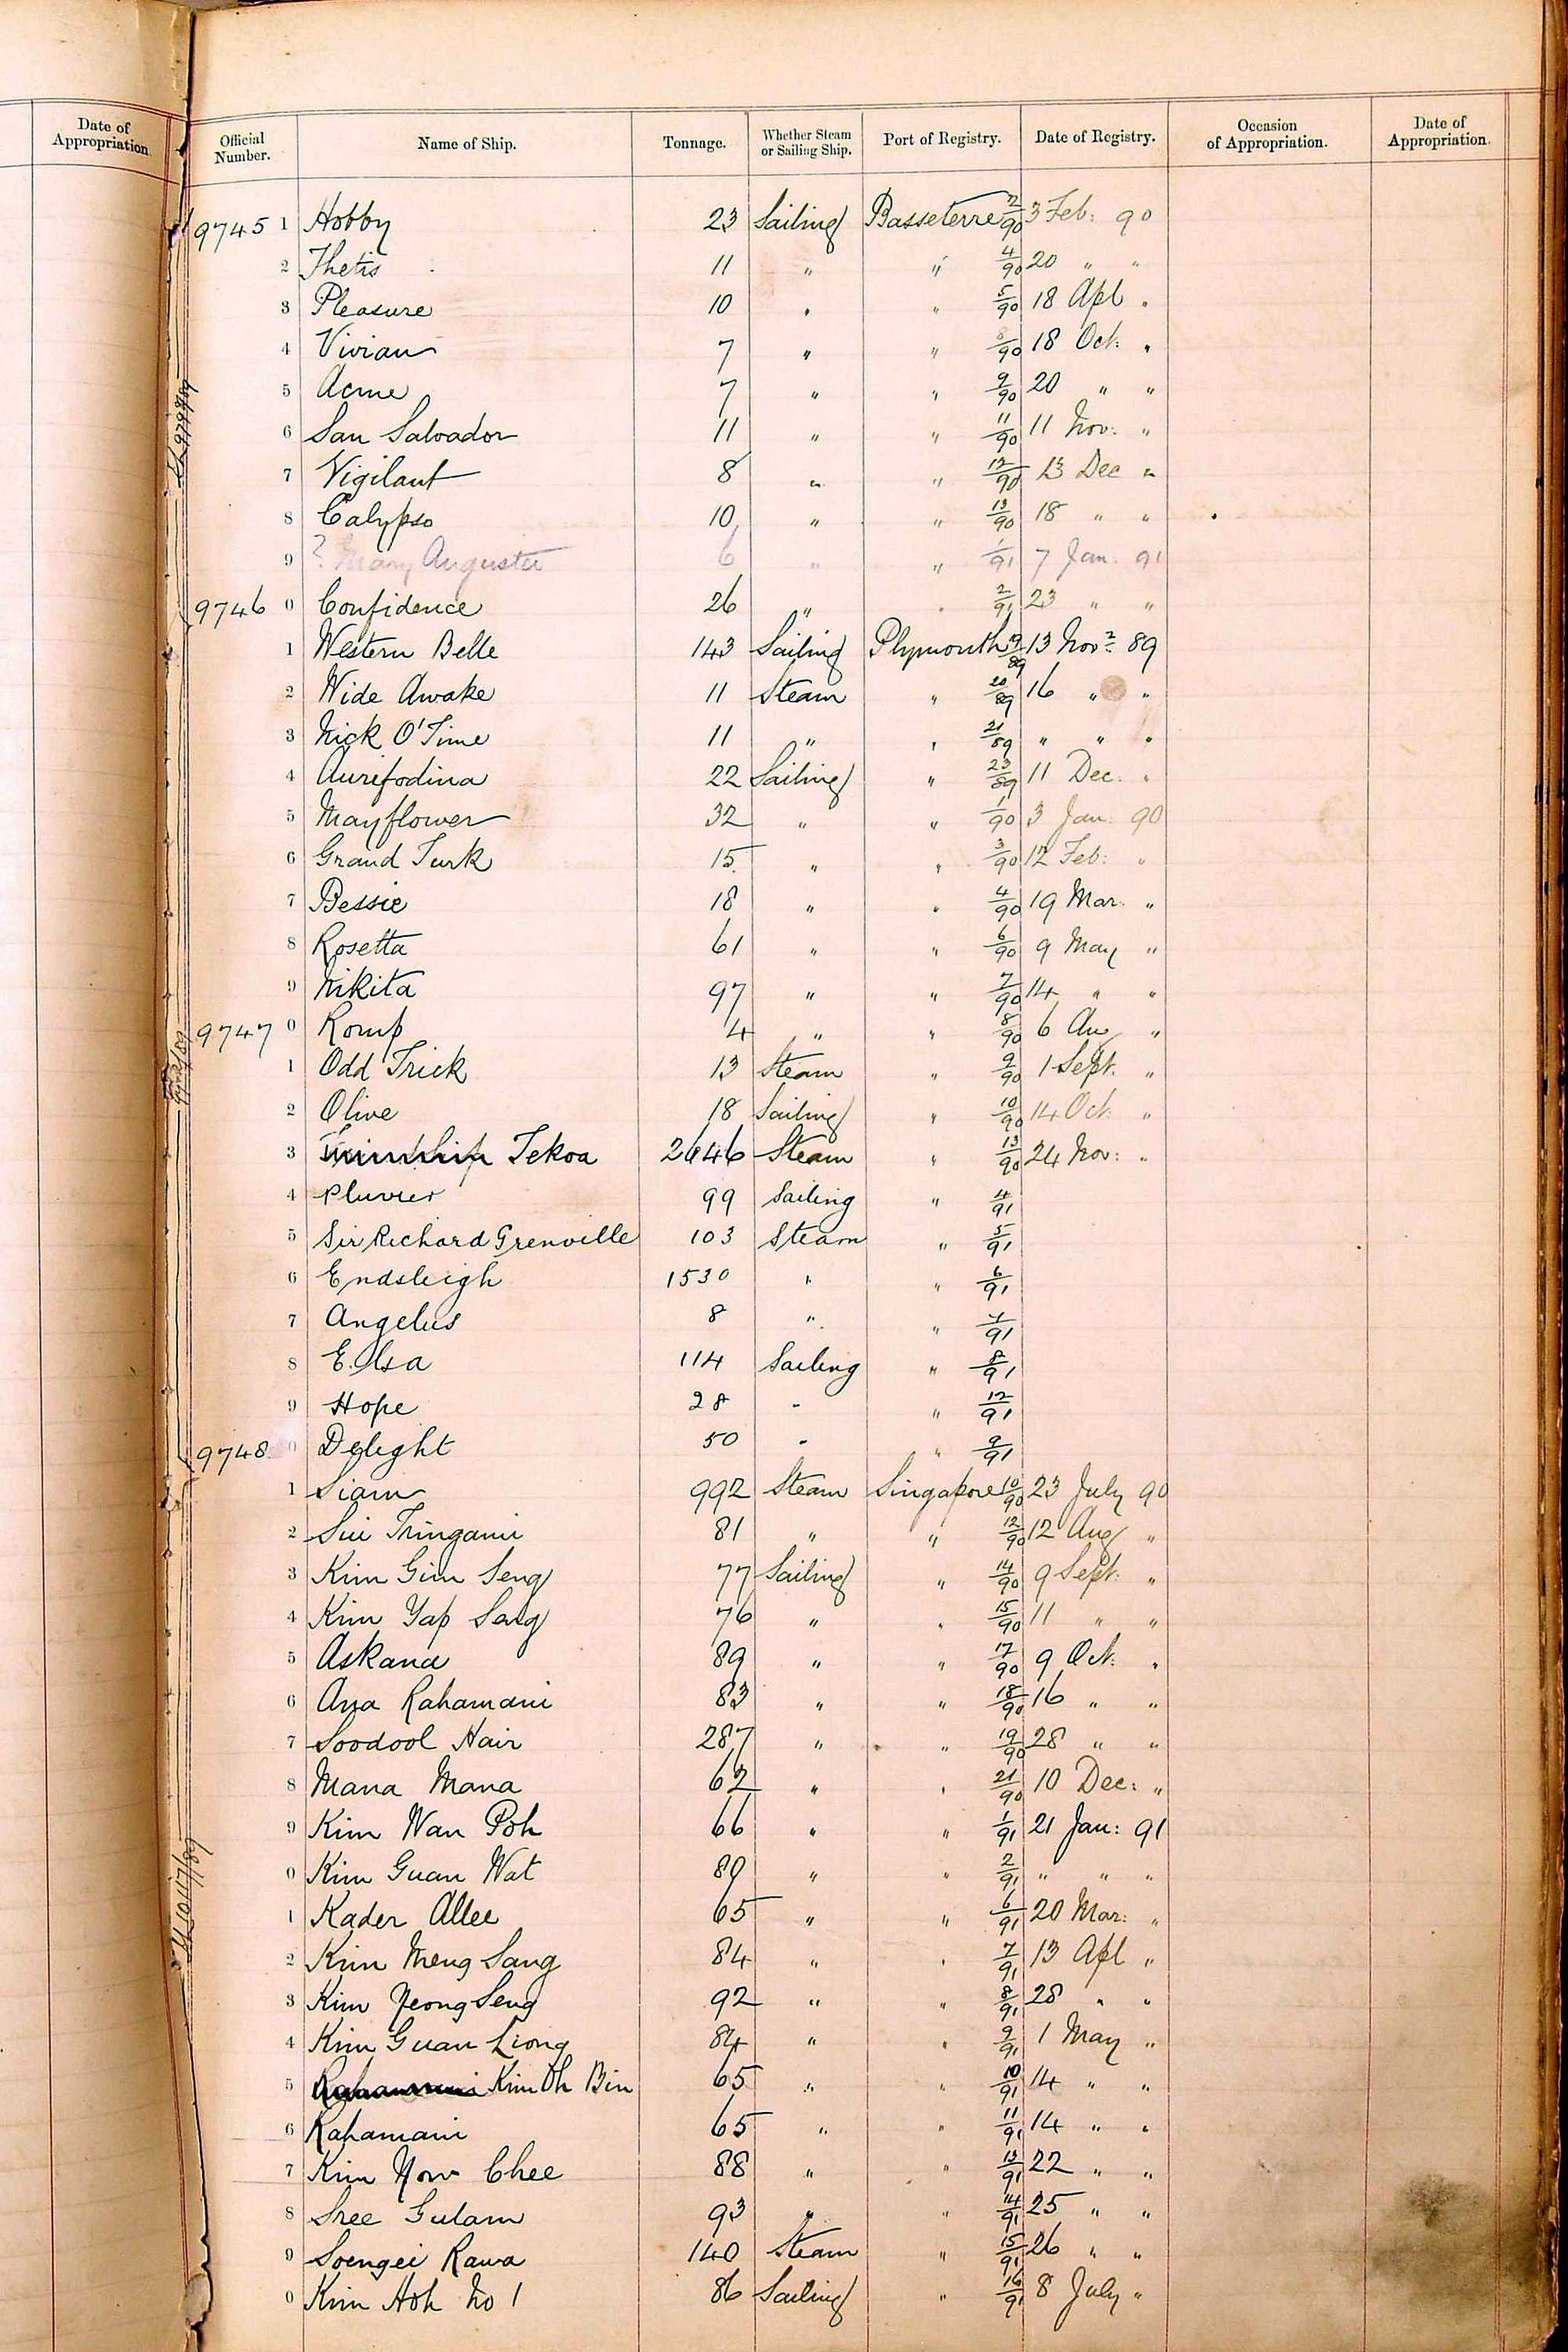 Date of Appropriation
Official Number. Name of Ship. Tonnage. Whether Steam or Sailing Ship. Port of Registry. Date of Registry. Occasion of Appropriation. Date of Appropriation.
9745 1 Hobby 23 Sailing Basseterre 2/90 3 Feb: 90
2 Thetis 11 " " 4/90 20 " "
3 Pleasure 10 " " 5/90 18 Apl "
4 Vivian 7 " " 8/90 18 Oct: "
5 Acme 7 " " 9/90 20 " "
6 San Salvador 11 " " 11/90 11 Nov: "
7 Vigilant 8 " " 12/90 13 Dec "
8 Calypso 10 " " 13/90 18 " "
9 ? Mary Auguster 6 " " 1/91 7 Jan: 91
9746 0 Confidence 26 " " 2/91 23 " "
1 Western Belle 143 Sailing Plymouth 19/89 13 Novr 89
2 Wide Awake 11 Steam " 20/89 16 " "
3 Nick O'Time 11 " " 21/89 " " "
4 Aurifodina 22 Sailing " 23/89 11 Dec: "
5 Mayflower 32 " " 1/90 3 Jan: 90
6 Grand Turk 15 " " 3/90 12 Feb: "
7 Bessie 18 " " 4/90 19 Mar: "
8 Rosetta 61 " " 6/90 9 May "
9 Nikita 97 " " 7/90 14 " "
9747 0 Romp 4 " " 8/90 6 Aug "
1 Odd Trick 13 Steam " 9/90 1 Sept. "
2 Olive 18 Sailing " 10/90 14 Oct: "
3 Tekoa 2646 Steam " 13/90 24 Nov: "
4 Pluvier 99 Sailing " 4/91
5 Sir Richard Grenville 103 Steam " 5/91
6 Endsleigh 1530 " " 6/91
7 Angelus 8 " " 7/91
8 Elsa 114 Sailing " 8/91
9 Hope 28 " " 12/91
9748 0 Delight 50 " " 9/91
1 Siam 992 Steam Singapore 10/90 23 July 90
2 Sui Tringanu 81 " " 12/90 12 Aug "
3 Kim Gim Seng 77 Sailing " 14/90 9 Sept: "
4 Kim Yap Sang 76 " " 15/90 11 " "
5 Askana 89 " " 17/90 9 Oct: "
6 Ana Rahamani 83 " " 18/90 16 " "
7 Soodool Hair 287 " " 19/90 28 " "
8 Mana Mana 62 " " 21/90 10 Dec: "
9 Kim Wan Poh 66 " " 1/91 21 Jan: 91
0 Kim Guan Wat 80 " " 2/91 " " "
1 Kader Allee 65 " " 6/91 20 Mar: "
2 Kim Meng Sang 84 " " 7/91 13 Apl "
3 Kim Yeong Seng 92 " " 8/91 28 " "
4 Kim Guan Liong 84 " " 9/91 1 May "
5 Rahamani Kim Oh Bin 65 " " 10/91 14 " "
6 Rahamani 65 " " 11/91 14 " "
7 Kim Yow Chee 88 " " 13/91 22 " "
8 Sree Gulam 93 " " 14/91 25 " "
9 Soengei Rawa 140 Steam " 15/91 26 " "
0 Kim Hoh No 1 86 Sailing " 16/91 8 July "